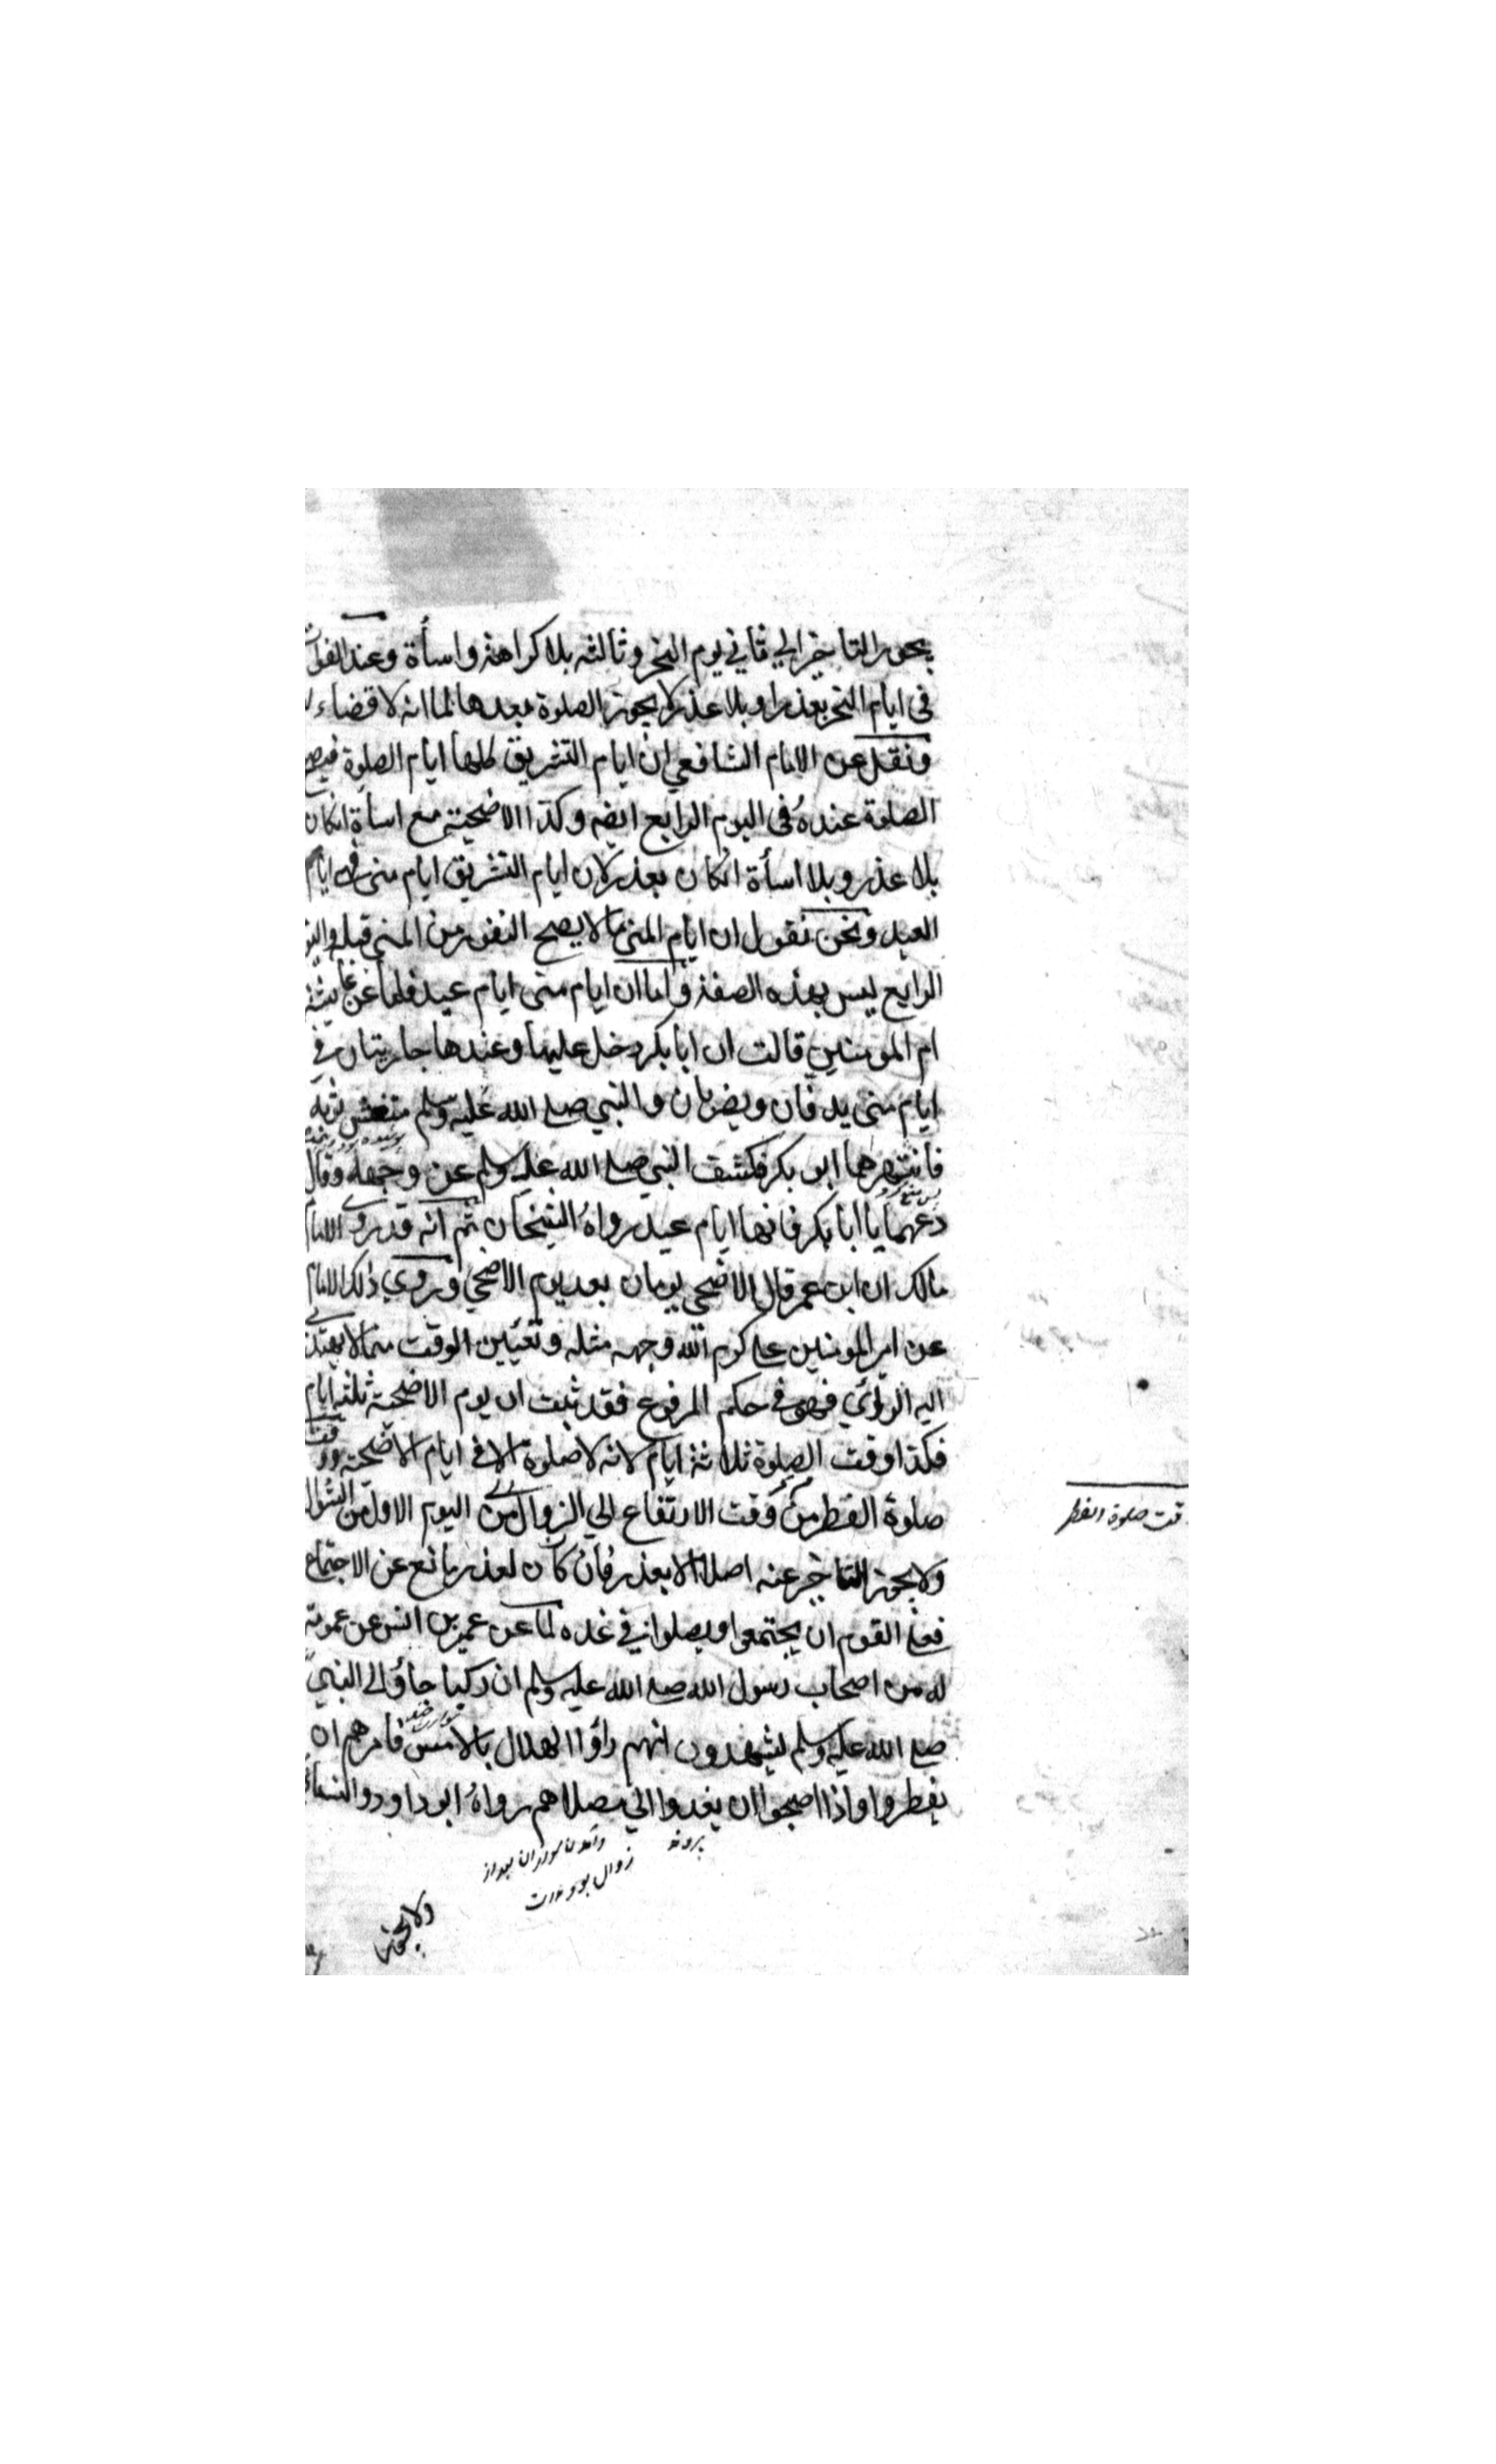 يجوز التاخير الي ثاني يوم النحر وثالثه بلا كراهة واسأة وعند الفوات
في ايام النحر بعذر او بلا عذر لا يجوز الصلوة بعدها لما انه لا قضاء
ونقل عن الامام الشافعي ان ايام التشريق كلها ايام الصلوة فيصح
الصلوة عنده في اليوم الرابع ايضه وكذا الاضحية مع اسأة انكان
بلا عذر وبلا اسأة انكان بعذر لان ايام التشريق ايام منى ايام
العيد ونحن نقول ان ايام المنى ما لا يصح النفر من المنى قبله واليو
الرابع ليس بهذه الصفة واما ان ايام منى ايام عيد فلما عن عايشة
ام المومنين قالت ان ابا بكر دخل عليها وعندها جاريتان في
ايام منى يدفان ويضربان والنبي صلى الله عليه وسلم متغش بثوبه
فانتهرهما ابو بكر فكشف النبي صلى الله عليه وسلم عن وجهه وقال
دعهما يا ابا بكر فانها ايام عيد رواه الشيخان ثم انه قد روى الامام
مالك ان ابن عمر قال الاضحي يومان بعد يوم الاضحي وروي ذلك الامام
عن امير المومنين علي كرم الله وجهه مثله وتعيين الوقت مما لا يهتدى
اليه الرائي فهو في حكم المرفوع فقد ثبت ان يوم الاضحية ثلثة ايام
فكذا وقت الصلوة ثلاثة ايام لانه لا صلوة الا في ايام الاضحية ووقت
صلوة الفطر من وقت الارتفاع الي الزوال من اليوم الاول من الشوال
ولا يجوز التاخير عنه اصلا الا بعذر فان كان لعذر مانع عن الاجتماع
فعلى القوم ان يجتمعوا ويصلوا في غده لما عن عمير بن انس عن عمومة
له من اصحاب رسول الله صلى الله عليه وسلم ان ركبا جاؤ الى النبي
صلى الله عليه وسلم يشهدون انهم راؤا الهلال بالامس فامرهم ان
يفطروا واذا اصبحوا ان يغدوا الي مصلاهم رواه ابو داود والنسائ
بروند
زوال بود
ولا يجوز
وقت صلوة الفطر